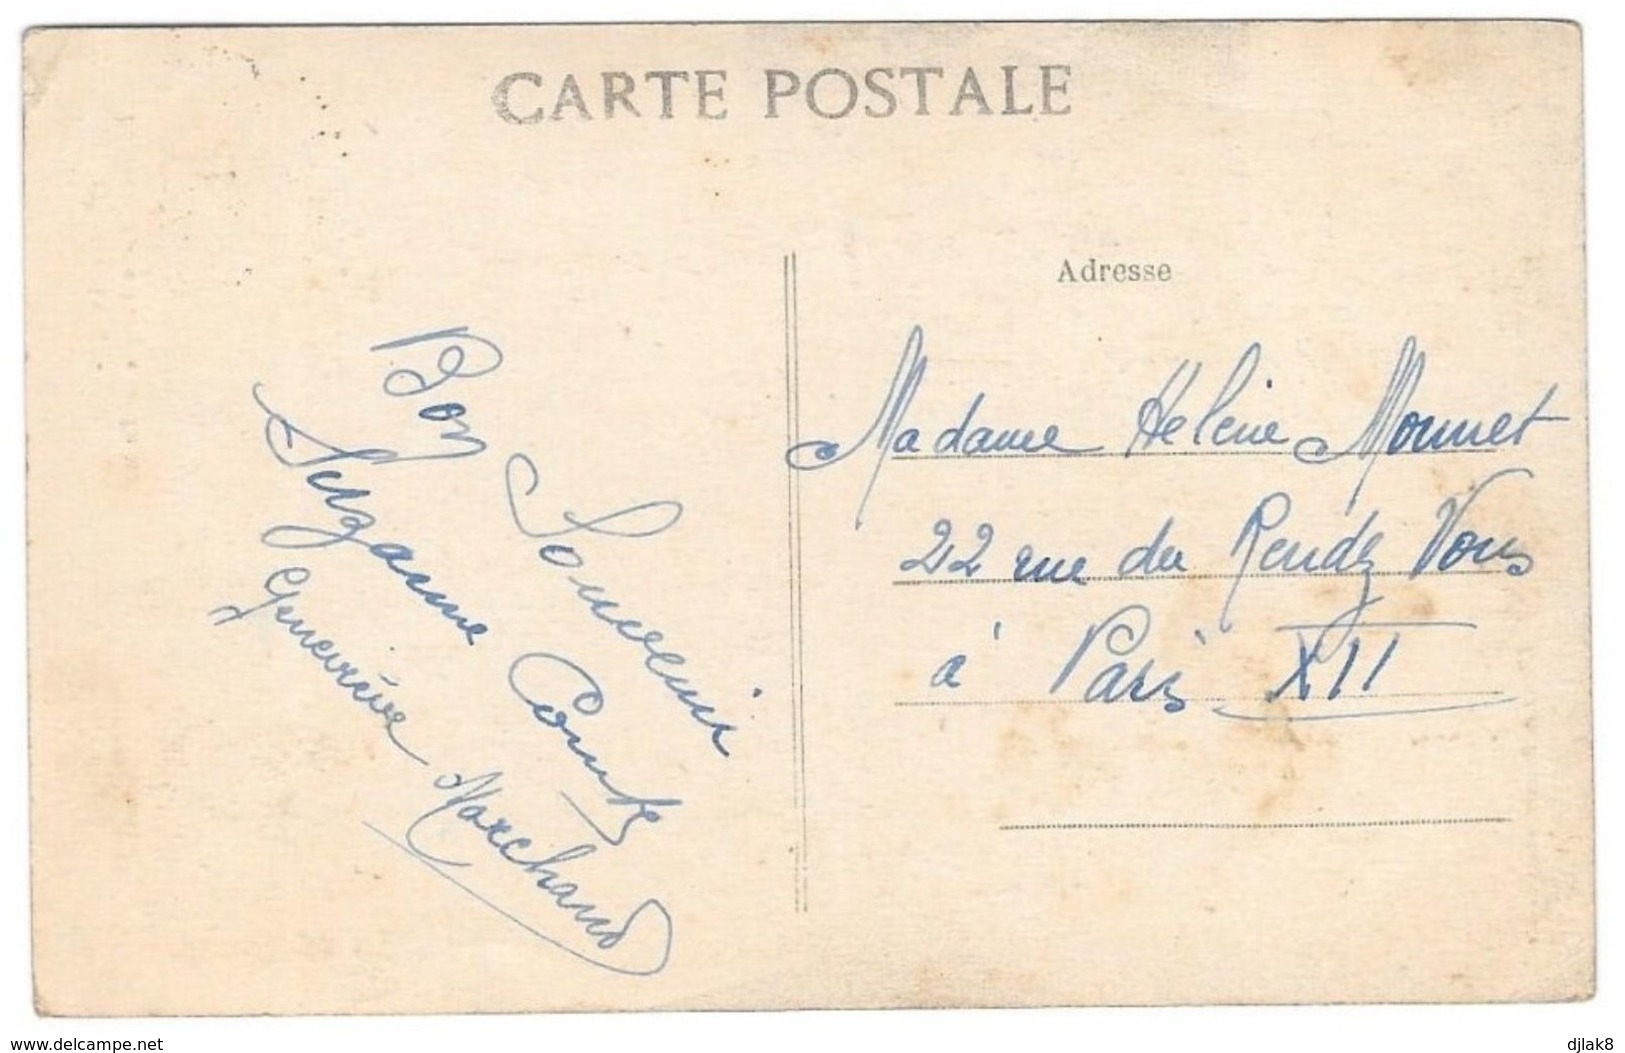 CARTE POSTALE
Adresse
Bon Souvenir
Suzanne Comte
Geneviève Marchand
Madame Helène Monnet
22 rue du Rendz Vous
à Paris XII
www.delcampe.net
djlak8